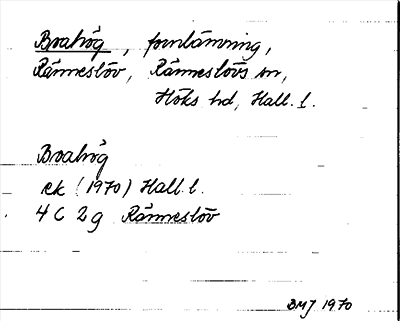 Boahög, fornlämning,
Ränneslöv, Ränneslövs sn,
Höks hd, Hall. l.
Boahög
ek (1970) Hall. l.
4 C 2 g Ränneslöv
BMJ 1970